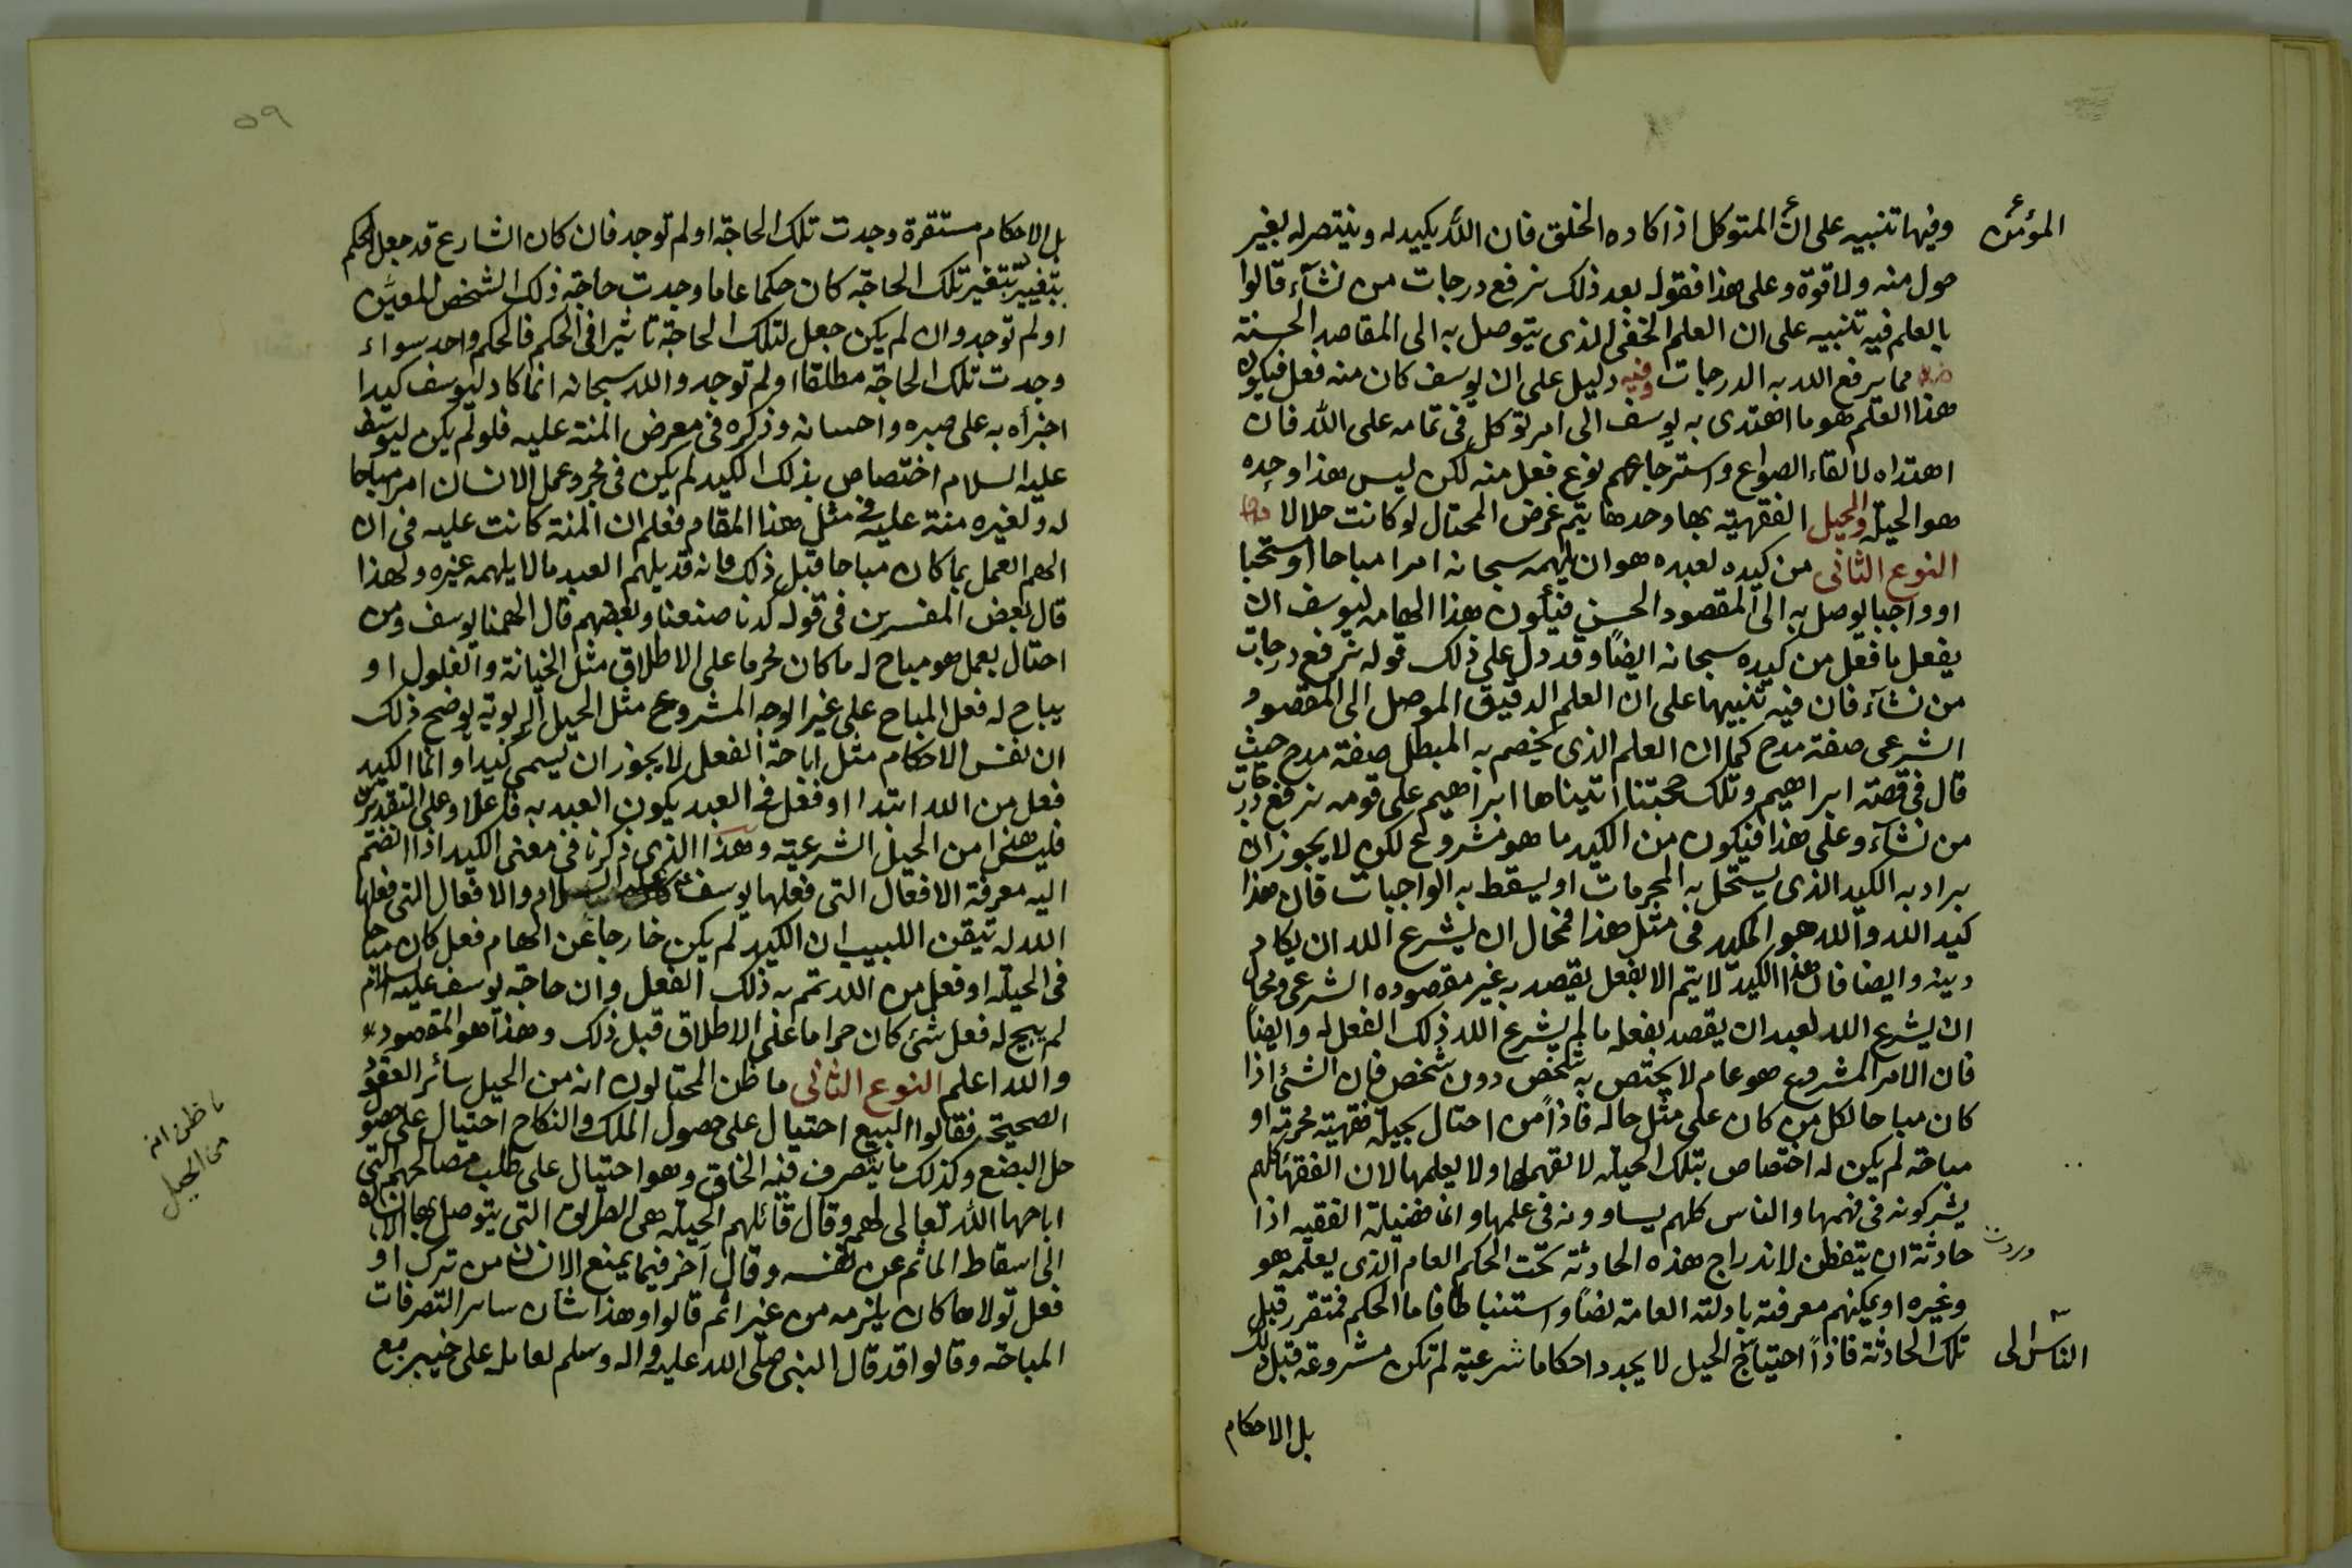 وفيها تنبيه على ان المتوكل اذا كاده الخلق فان الله يكيد له وينتصر له بغير
المؤمن
حول منه ولا قوة وعلى هذا فقوله بعد ذلك نرفع درجات من نشآء قالوا
بالعلم فيه تنبيه على ان العلم الخفى الذى يتوصل به الى المقاصد الحسنة
مما يرفع الله به الدرجات وفيه دليل على ان يوسف كان منه فعل فيكون
هذا العلم هو ما اهتدى به يوسف الى امر توكل فى تمامه على الله فان
اهتداه لالقاء الصواع واسترجاعهم نوع فعل منه لكن ليس هذا وحده
هو الحيلة والحيل الفقهية بها وحدها يتم غرض المحتال لو كانت حلالا
النوع الثانى من كيده لعبده هو ان يلهمه سبحانه امرا مباحا او مستحبا
او واجبا يوصل به الى المقصود الحسن فيكون هذا الهامه ليوسف ان
يفعل ما فعل من كيده سبحانه ايضًا وقد دل على ذلك قوله نرفع درجات
من نشآء فان فيه تنبيها على ان العلم الدقيق الموصل الى المقصود
الشرعى صفة مدح كما ان العلم الذى يخصم به المبطل صفة مدح حيث
قال فى قصة ابراهيم وتلك حجتنا اتيناها ابراهيم على قومه نرفع درجات
من نشآء وعلى هذا فيكون من الكيد ما هو مشروع لكن لا يجوز ان
يراد به الكيد الذى يستحل به المحرمات او يسقط به الواجبات فان هذا
كيد الله والله هو المكيد فى مثل هذا فمحال ان يشرع الله ان يكاد
دينه وايضا فان هذا الكيد لا يتم الا بفعل يقصد به غير مقصوده الشرعى ومحال
ان يشرع الله لعبد ان يقصد بفعله ما لم يشرع الله ذلك الفعل له وايضا
فان الامر المشروع هو عام لا يختص به شخص دون شخص فان الشئ اذا
كان مباحا لكل من كان على مثل حاله فاذاً من احتال بحيلة فقهية محرمة او
مباحة لم يكن له اختصاص بتلك الحيلة لا بفهمها ولا يعلمها لان الفقهآ كلهم
يشركونه فى فهمها والناس كلهم يساوونه فى علمها وانما فضيلة الفقيه اذا
وردت
حادثة ان يتفطن لاندراج هذه الحادثة تحت الحكم العام الذى يعلمه هو
وغيره او يمكنهم معرفته بادلته العامة نصًا واستنباطا فاما الحكم فمتقرر قبل
تلك الحادثة فاذاً احتياج الحيل لا يجدد احكاما شرعية لم تكن مشروعة قبل ذلك
الناس الى
بل الاحكام
٥٩
بل الاحكام مستقرة وجدت تلك الحاجة او لم توجد فان كان الشارع قد جعل الحكم
يتغير بتغير تلك الحاجة كان حكما عاما وجدت حاجة ذلك الشخص المعين
او لم توجد وان لم يكن جعل لتلك الحاجة تاثيرا فى الحكم فالحكم واحد سواء
وجدت تلك الحاجة مطلقا او لم توجد والله سبحانه انما كاد ليوسف كيدا
اجزأه به على صبره واحسانه وذكره فى معرض المنة عليه فلو لم يكن ليوسف
عليه السلام اختصاص بذلك الكيد لم يكن فى مجرد عمل الانسان امرا مباحا
له ولغيره منة عليه فى مثل هذا المقام فعلم ان المنة كانت عليه فى ان
الهم العمل بما كان مباحا قبل ذلك فانه قد يلهم العبد ما لا يلهمه غيره ولهذا
قال بعض المفسرين فى قوله كدنا صنعنا وبعضهم قال الهمنا يوسف ومن
احتال بعمل هو مباح له ما كان محرما على الاطلاق مثل الخيانة والغلول او
يباح له فعل المباح على غير الوجه المشروع مثل الحيل الربوية يوضح ذلك
ان نفس الاحكام مثل اباحة الفعل لا يجوز ان يسمى كيدا وانما الكيد
فعل من الله ابتدا او فعل فى العبد يكون العبد به فاعلا وعلى التقديرين
فليس هذا من الحيل الشرعية وهذا الذى ذكرنا فى معنى الكيد اذا انضم
اليه معرفة الافعال التى فعلها يوسف عليه السلام والافعال التى فعلها
الله له تيقن اللبيب ان الكيد لم يكن خارجا عن الهام فعل كان مباحا
فى الحيلة او فعل من الله تم به ذلك الفعل وان حاجة يوسف عليه السلام
لم يبح له فعل شئ كان حراما على الاطلاق قبل ذلك وهذا هو المقصود
والله اعلم النوع الثانى ما ظن المحتالون انه من الحيل سائر العقود
الصحيحة فقالوا البيع احتيال على حصول الملك والنكاح احتيال على حصول
حل البضع وكذلك ما يتصرف فيه الخلق وهو احتيال على طلب مصالحهم التى
اباحها الله تعالى لهم وقال قائلهم الحيلة هى الطريق التى يتوصل بها الانسان
الى اسقاط الماثم عن نفسه وقال آخر فيما يمنع الانسان من ترك او
فعل لولاها كان يلزمه من غير اثم قالوا وهذا شان سائر التصرفات
المباحة وقالوا قد قال النبى صلى الله عليه واله وسلم لعامله على خيبر بع
ما ظن انه
من الحيل